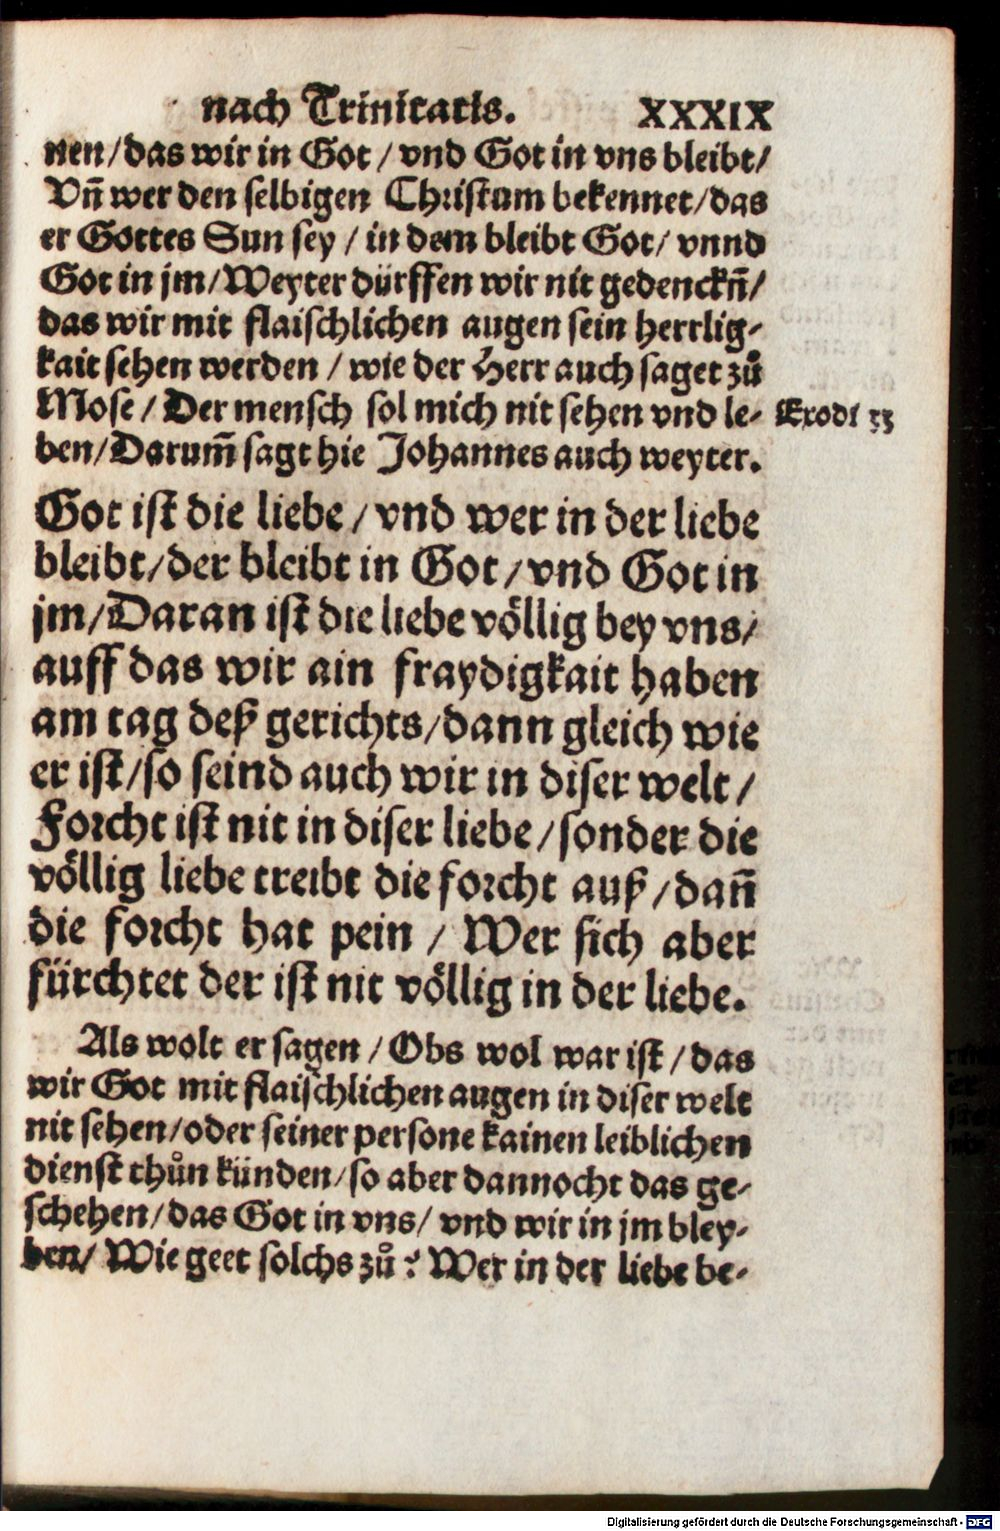 nach Trinitatis. XXXIX
nen/das wir in Got/vnd Got in vns bleibt/
Vñ wer den selbigen Christum bekennet/das
er Gottes Sun sey/in dem bleibt Got/vnnd
Got in jm/Weyter dürffen wir nit gedenckñ/
das wir mit flaischlichen augen sein herrlig-
kait sehen werden/wie der Herr auch saget zů
Mose/Der mensch sol mich nit sehen vnd le- Exodi 33
ben/Darum̃ sagt hie Johannes auch weyter.
Got ist die liebe/vnd wer in der liebe
bleibt/der bleibt in Got/vnd Got in
jm/Daran ist die liebe völlig bey vns/
auff das wir ain fraydigkait haben
am tag deß gerichts/dann gleich wie
er ist/so seind auch wir in diser welt/
Forcht ist nit in diser liebe/sonder die
völlig liebe treibt die forcht auß/dañ
die forcht hat pein/Wer sich aber
fürchtet der ist nit völlig in der liebe.
Als wolt er sagen/Obs wol war ist/das
wir Got mit flaischlichen augen in diser welt
nit sehen/oder seiner persone kainen leiblichen
dienst thůn künden/so aber dannocht das ge-
schehen/das Got in vns/vnd wir in jm bley-
ben/Wie geet solchs zů? Wer in der liebe be-
Digitalisierung gefördert durch die Deutsche Forschungsgemeinschaft - DFG